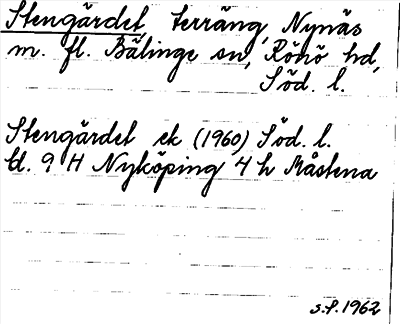 Stengärdet, terräng, Nynäs
m. fl. Bälinge sn, Rönö hd,
Söd. l.
Stengärdet ek (1960) Söd. l.
bl. 9 H Nyköping 4 h Måstena
s.f. 1962